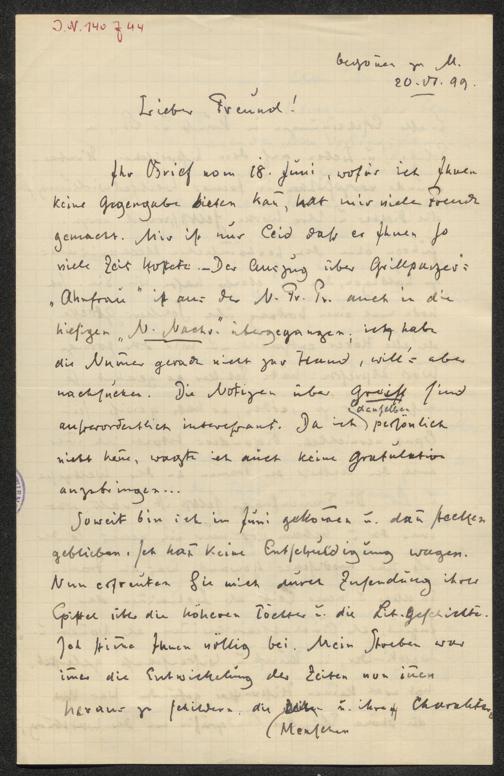 I.N. 140 744
begonnen zu M.
20.VI.99.
Lieber Freund!
Ihr Brief vom 18. Juni, wofür ich Ihnen
keine Gegengabe bieten kañ, hat mir viele Freude
gemacht. Mir ist nur Leid daß er Ihnen so
viele Zeit kostete. – Der Auszug über Grillparzer's
„Ahnfrau" ist aus der N. Fr. Pr. auch in die
hiesigen „N. Nachr." übergegangen; ich habe
die Num̃er gerade nicht zur Hand, will's aber
nachsuchen. Die Notizen über Greiff sind
außerordentlich interessant. Da ich denselben persönlich
nicht keñe, wagte ich auch keine Gratulation
anzubringen...
Soweit bin ich im Juni gekom̃en u. dañ stecken
geblieben. Ich kañ keine Entschuldigung wagen.
Nun erfreuten Sie mich durch Zusendung ihrer
Epistel über die höheren Töchter u. die Lit.geschichte.
Ich stim̃e Ihnen völlig bei. Mein Streben war
im̃er die Entwickelung der Zeiten von iñen
heraus zu schildern, die u. ihre Charaktere
Menschen